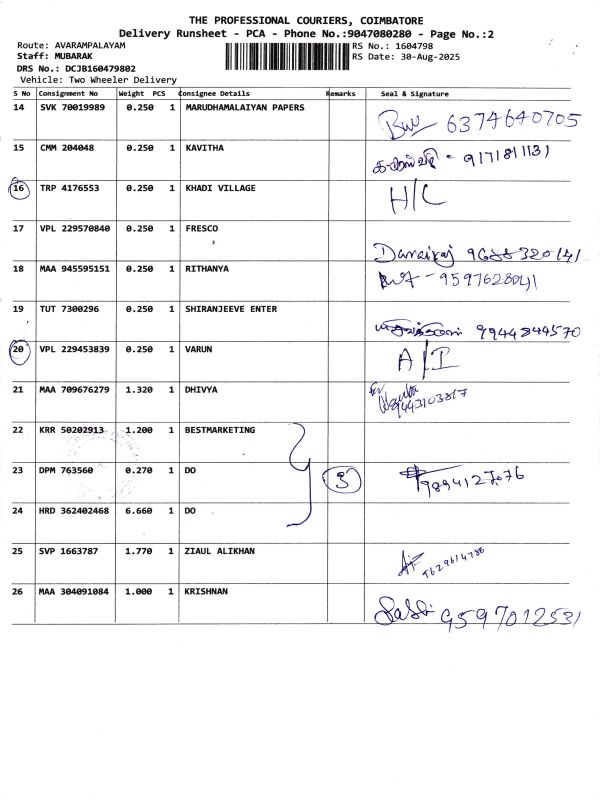 THE PROFESSIONAL COURIERS, COIMBATORE
Delivery Runsheet - PCA - Phone No.:9047080280 - Page No.:2
Route: AVARAMPALAYAM RS No.: 1604798
Staff: MUBARAK RS Date: 30-Aug-2025
DRS No.: DCJB160479802
Vehicle: Two Wheeler Delivery
S No Consignment No Weight PCS Consignee Details Remarks Seal & Signature
14 SVK 70019989 0.250 1 MARUDHAMALAIYAN PAPERS
6374640705
15 CMM 204048 0.250 1 KAVITHA
9171811131
16 TRP 4176553 0.250 1 KHADI VILLAGE H/C
17 VPL 229570840 0.250 1 FRESCO
Danairaj 9688320141
18 MAA 945595151 0.250 1 RITHANYA
9597628041
19 TUT 7300296 0.250 1 SHIRANJEEVE ENTER
9944844570
20 VPL 229453839 0.250 1 VARUN A/I
21 MAA 709676279 1.320 1 DHIVYA
for
9443103817
22 KRR 50202913 1.200 1 BESTMARKETING
23 DPM 763560 0.270 1 DO 3
9894127076
24 HRD 362402468 6.660 1 DO
25 SVP 1663787 1.770 1 ZIAUL ALIKHAN
9629614786
26 MAA 304091084 1.000 1 KRISHNAN
Sasi 9597012531